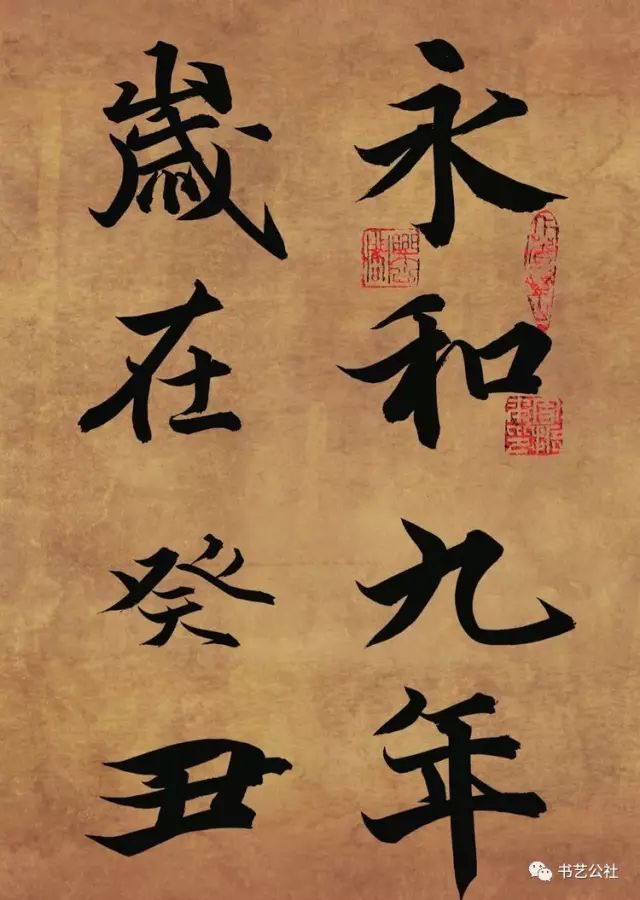 永和九年
歲在癸丑
书艺公社